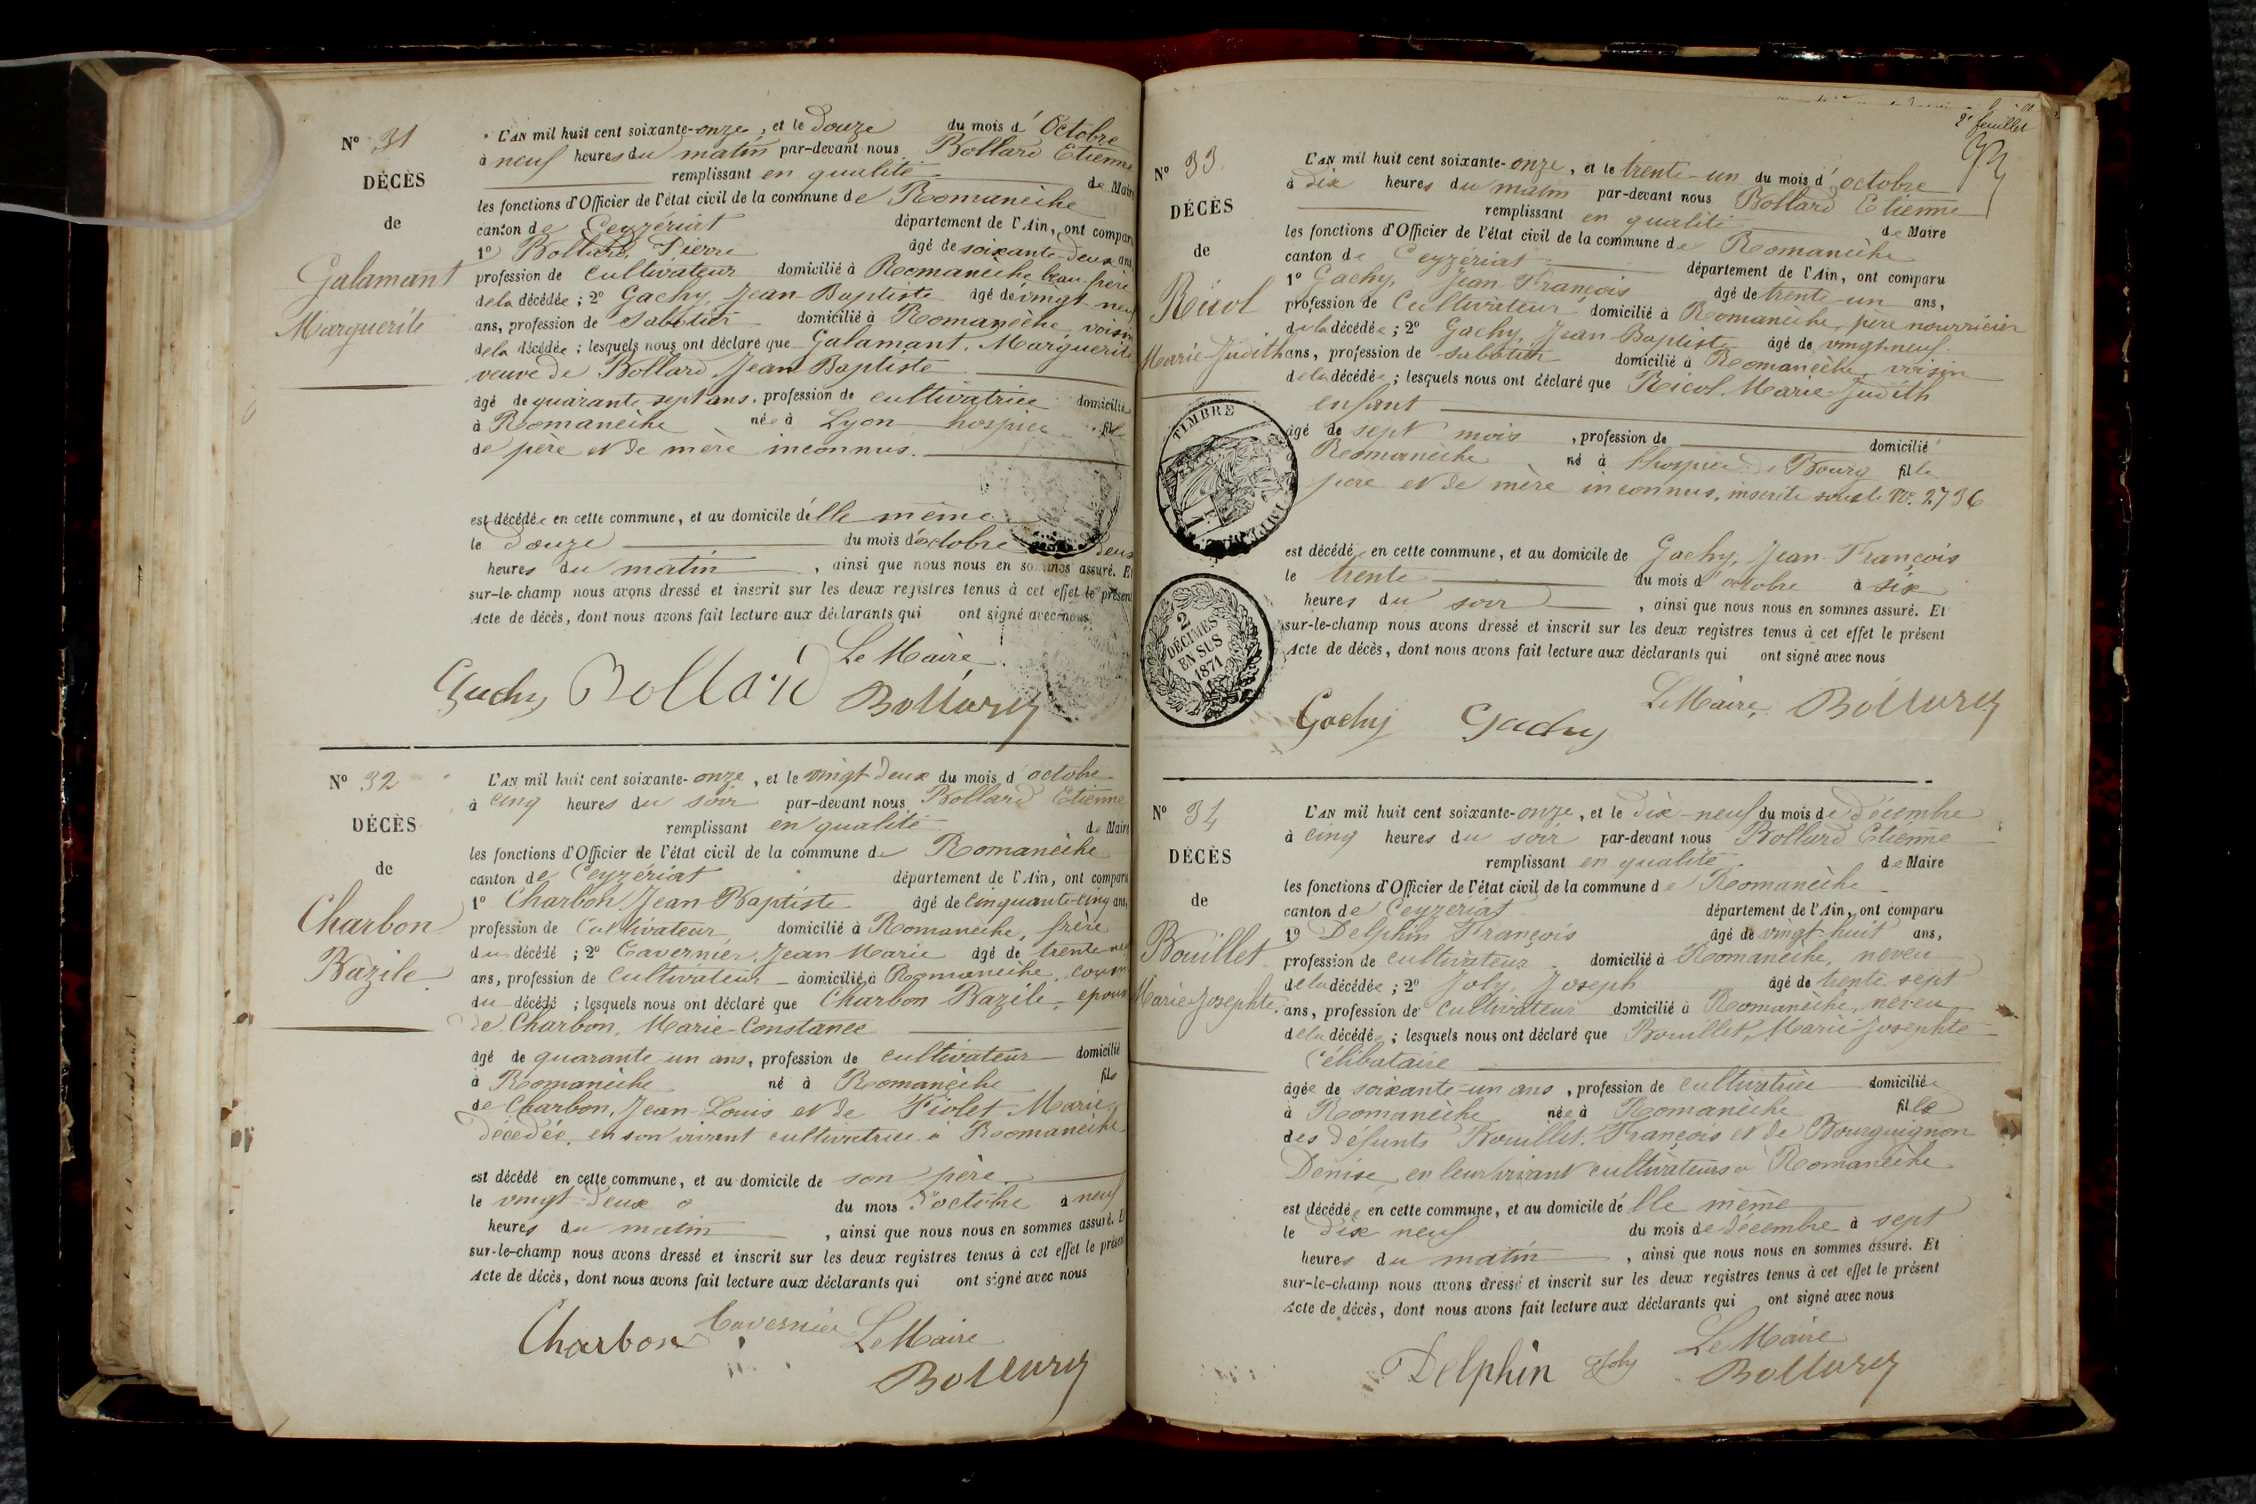 N° 31
DÉCÈS
de
Galamant
Marguerite
L'AN mil huit cent soixante-onze, et le Douze du mois d'Octobre
à neuf heures du matin par-devant nous Bollard Etienne
remplissant en qualité de Maire
les fonctions d'Officier de l'état civil de la commune de Romanèche
canton de Ceyzériat département de l'Ain, ont comparu
1° Bollard, Pierre âgé de soixante-deux ans,
profession de cultivateur domicilié à Romanèche beau-frère
de la décédée ; 2° Gachy, Jean-Baptiste âgé de vingt-neuf
ans, profession de sabotier domicilié à Romanèche, voisin
de la décédée ; lesquels nous ont déclaré que Galamant, Marguerite
veuve de Bollard, Jean Baptiste
âgé de quarante sept ans, profession de cultivatrice domicilié
à Romanèche née à Lyon hospice fille
de père et de mère inconnus.
est décédée en cette commune, et au domicile d'elle même
le Douze du mois d'octobre deux
heures du matin, ainsi que nous nous en sommes assuré. Et
sur-le-champ nous avons dressé et inscrit sur les deux registres tenus à cet effet le présent
Acte de décès, dont nous avons fait lecture aux déclarants qui ont signé avec nous
Le Maire
Gachy Bollard Bollard
N° 32
DÉCÈS
de
Charbon
Bazile
L'AN mil huit cent soixante-onze, et le vingt-deux du mois d'octobre
à cinq heures du soir par-devant nous Bollard Etienne
remplissant en qualité de Maire
les fonctions d'Officier de l'état civil de la commune de Romanèche
canton de Ceyzériat département de l'Ain, ont comparu
1° Charbon Jean-Baptiste âgé de cinquante-cinq ans,
profession de Cultivateur domicilié à Romanèche, frère
du décédé ; 2° Tavernier, Jean Marie âgé de trente
ans, profession de cultivateur domicilié à Romanèche, cousin
du décédé ; lesquels nous ont déclaré que Charbon Bazile, époux
de Charbon, Marie-Constance
âgé de quarante-un ans, profession de cultivateur domicilié
à Romanèche né à Romanèche fils
de Charbon, Jean-Louis et de Piolet Marie,
décédée, en son vivant cultivatrice à Romanèche
est décédé en cette commune, et au domicile de son père
le vingt-deux du mois d'octobre à neuf
heures du matin, ainsi que nous nous en sommes assuré. Et
sur-le-champ nous avons dressé et inscrit sur les deux registres tenus à cet effet le présent
Acte de décès, dont nous avons fait lecture aux déclarants qui ont signé avec nous
Charbon Tavernier Le Maire
Bollard
2e feuillet
N° 33
DÉCÈS
de
Ricol
Marie Judith
L'AN mil huit cent soixante-onze, et le trente-un du mois d'octobre
à dix heures du matin par-devant nous Bollard Etienne
remplissant en qualité de Maire
les fonctions d'Officier de l'état civil de la commune de Romanèche
canton de Ceyzériat département de l'Ain, ont comparu
1° Gachy, Jean-François âgé de trente-un ans,
profession de Cultivateur domicilié à Romanèche, père nourricier
de la décédée ; 2° Gachy, Jean-Baptiste âgé de vingt-neuf
ans, profession de sabotier domicilié à Romanèche, voisin
de la décédée ; lesquels nous ont déclaré que Ricol Marie-Judith
enfant
âgé de sept mois, profession de domicilié
Romanèche né à l'hospice de Bourg fille
père et de mère inconnus, inscrite sous le N°. 2736
est décédé en cette commune, et au domicile de Gachy, Jean-François
le trente du mois d'octobre à six
heures du soir, ainsi que nous nous en sommes assuré. Et
sur-le-champ nous avons dressé et inscrit sur les deux registres tenus à cet effet le présent
Acte de décès, dont nous avons fait lecture aux déclarants qui ont signé avec nous
Le Maire, Bollard
Gachy Gachy
TIMBRE
2
DÉCIMES
EN SUS
1871
N° 34
DÉCÈS
de
Bouillet
Marie Josephte
L'AN mil huit cent soixante-onze, et le dix-neuf du mois de décembre
à cinq heures du soir par-devant nous Bollard Etienne
remplissant en qualité de Maire
les fonctions d'Officier de l'état civil de la commune de Romanèche
canton de Ceyzériat département de l'Ain, ont comparu
1° Delphin François âgé de vingt-huit ans,
profession de cultivateur domicilié à Romanèche, neveu
de la décédée ; 2° Joly, Joseph âgé de trente sept
ans, profession de cultivateur domicilié à Romanèche, neveu
de la décédée ; lesquels nous ont déclaré que Bouillet, Marie-Josephte
Célibataire
âgée de soixante-un ans, profession de cultivatrice domiciliée
à Romanèche née à Romanèche fille
des défunts Bouillet, François et de Bourguignon
Denise, en leur vivant cultivateurs à Romanèche
est décédée en cette commune, et au domicile d'elle même
le Dix neuf du mois de décembre à sept
heures du matin, ainsi que nous nous en sommes assuré. Et
sur-le-champ nous avons dressé et inscrit sur les deux registres tenus à cet effet le présent
Acte de décès, dont nous avons fait lecture aux déclarants qui ont signé avec nous
Le Maire
Delphin Joly Bollard